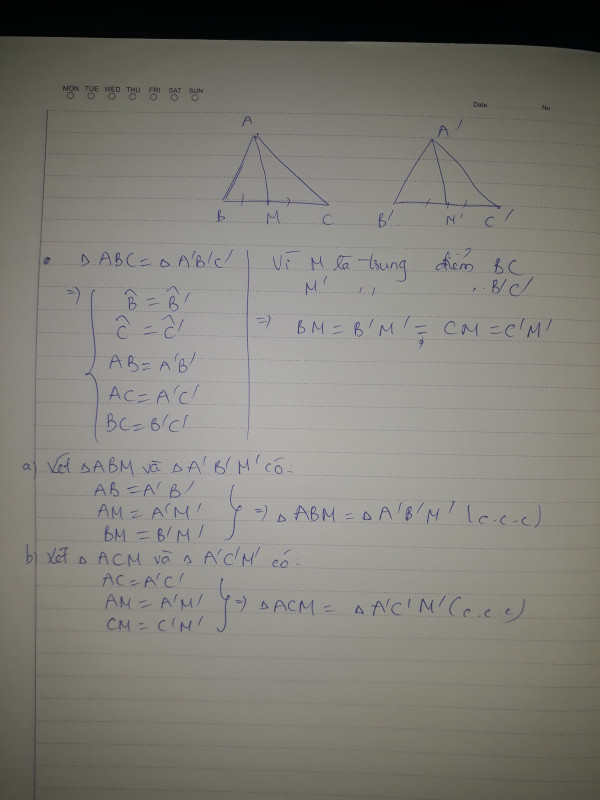 MON TUE WED THU FRI SAT SUN
Date No
A A'
B M C B' M' C'
Δ ABC = Δ A'B'C'
=> B̂ = B̂'
Ĉ = Ĉ'
AB = A'B'
AC = A'C'
BC = B'C'
Vì M là trung điểm BC
M' ,, ,, B'C'
=> BM = B'M' = CM = C'M'
a) Xét ΔABM và Δ A'B'M' có.
AB = A'B'
AM = A'M'
BM = B'M'
=> Δ ABM = Δ A'B'M' (c.c.c)
b) Xét Δ ACM và Δ A'C'M' có.
AC = A'C'
AM = A'M'
CM = C'M'
=> Δ ACM = Δ A'C'M' (c.c.c)